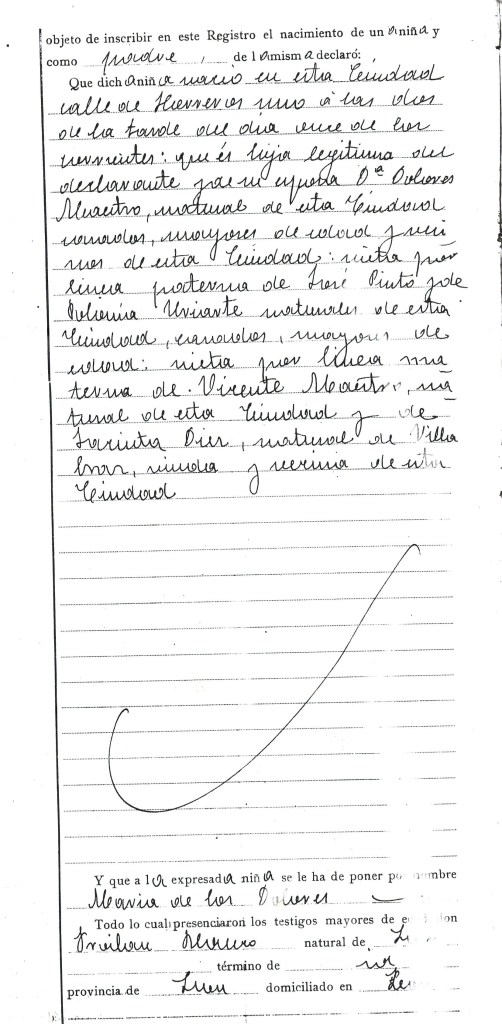 objeto de inscribir en este Registro el nacimiento de un a niña y
como padre, de l a misma declaró:
Que dich a niñ a nació en esta Ciudad
calle de Herreros uno á las dos
de la tarde del dia once de los
corrientes: que és hija legitima del
declarante y de su esposa Dª Dolores
Maestro, natural de esta Ciudad
casados, mayores de edad y veci
nos de esta Ciudad: nieta por
linea paterna de José Pinto y de
Uriarte naturales de esta
Ciudad, casados, mayores de
edad: nieta por linea ma
terna de Vicente Maestro, na
tural de esta Ciudad y de
Jacinta Diez, natural de Villa
viuda y vecina de esta
Ciudad
Y que a l a expresad a niñ a se le ha de poner po mbre
Maria de los Dolores
Todo lo cual presenciaron los testigos mayores de e on
Froilan natural de L
término de
provincia de domiciliado en Le